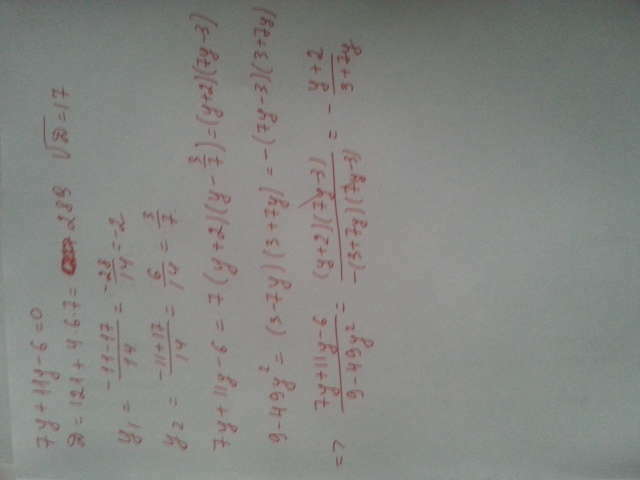 7y+11y-6=0
D=121+4·6·7= 289 √D=17
y₁ = -11-17/14 = -28/14 = -2
y₂ = -11+17/14 = 6/14 = 3/7
7y+11y-6 = 7(y+2)(y-3/7)=(y+2)(7y-3)
9-49y² = (3-7y)(3+7y) = -(7y-3)(3+7y)
=> 7y+11y-6/9-49y² = (y+2)(7y-3)/-(3+7y)(7y-3) = - y+2/3+7y